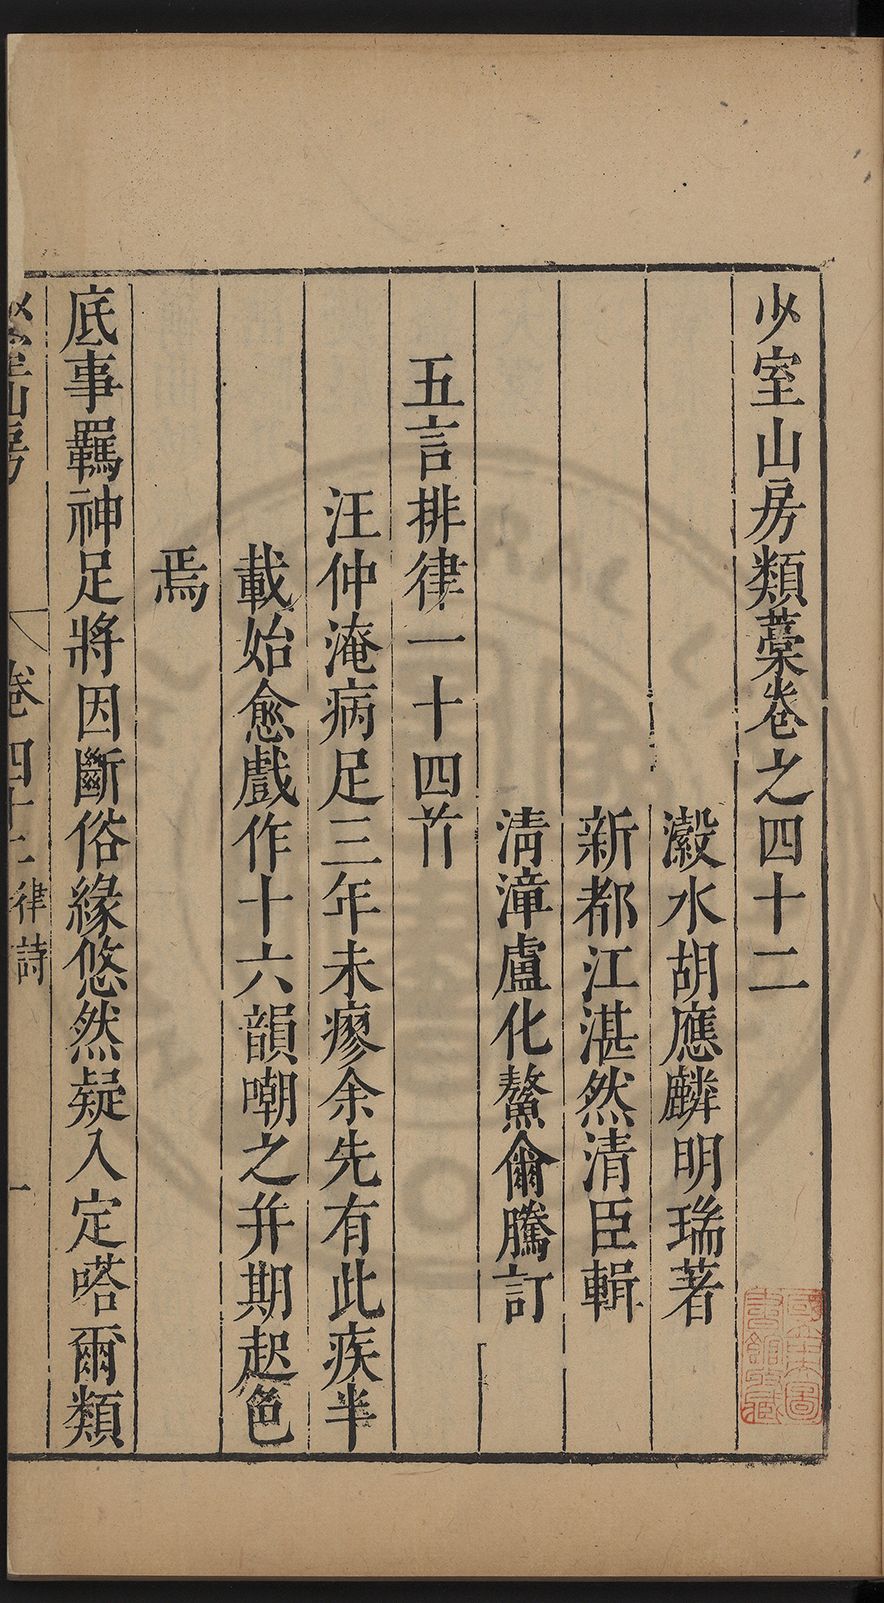 少室山房類藁卷之四十二
瀫水胡應麟明瑞著
新都江湛然清臣輯
清漳盧化鰲爾騰訂
五言排律一十四首
汪仲淹病足三年未瘳余先有此疾半
載始愈戲作十六韻嘲之并期起色
焉
底事羈神足將因斷俗緣悠然疑入定嗒爾類
少室山房
卷四十二
律詩
一
國立中央圖書館收藏